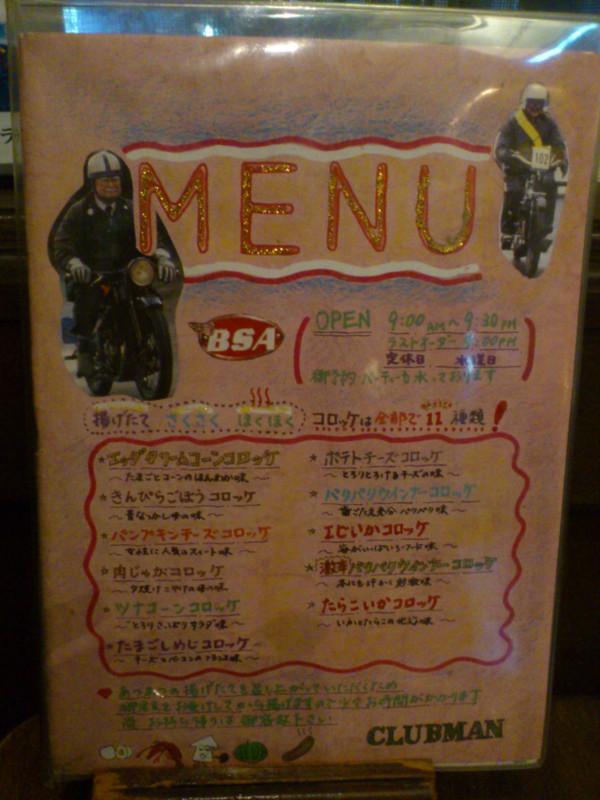 MENU
102
BSA
OPEN 9:00AM〜9:30PM
ラストオーダー 9:00PM
定休日 水曜日
御予約・パーティーも承っております
揚げたて さくさく ほくほく コロッケは全部で11種類!
エッグクリームコーンコロッケ
〜たまごとコーンのほんわか味〜
きんぴらごぼうコロッケ
〜昔なつかし味の味〜
パンプキンチーズコロッケ
〜女の子に人気のスィート味〜
肉じゃがコロッケ
ツナコーンコロッケ
〜とろりさっぱりサラダ味〜
たまごしめじコロッケ
ポテトチーズコロッケ
〜とろりとろけるチーズの味〜
パリパリウインナーコロッケ
〜歯ごたえ充分パリパリ味〜
エビいかコロッケ
〜海がいっぱいシーフード味〜
激辛パリパリウインナーコロッケ
たらこいかコロッケ
〜いかとたらこの
あつあつの揚げたてを召し上がっていただくため
御注文をお受けしてから揚げますので少々お時間がかかります
CLUBMAN